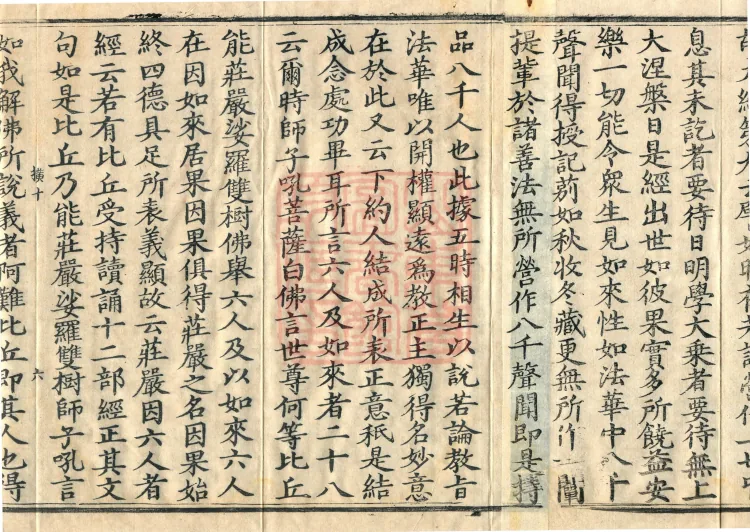 息其未訖者要待日明學大乘者要待無上
大涅槃日是經出世如彼果實多所饒益安
樂一切能令眾生見如來性如法華中八千
聲聞得授記莂如秋收冬藏更無所作一闡
提輩於諸善法無所營作八千聲聞即是持
品八千人也此據五時相生以說若論教旨
法華唯以開權顯遠為教正主獨得名妙意
在於此又云下約人結成所表正意秖是結
成念處功畢耳所言六人及如來者二十八
云爾時師子吼菩薩白佛言世尊何等比丘
能莊嚴娑羅雙樹佛舉六人及以如來六人
在因如來居果因果俱得莊嚴之名因果始
終四德具足所表義顯故云莊嚴因六人者
經云若有比丘受持讀誦十二部經正其文
句如是比丘乃能莊嚴娑羅雙樹師子吼言
橫十 六
如我解佛所說義者阿難比丘即其人也得